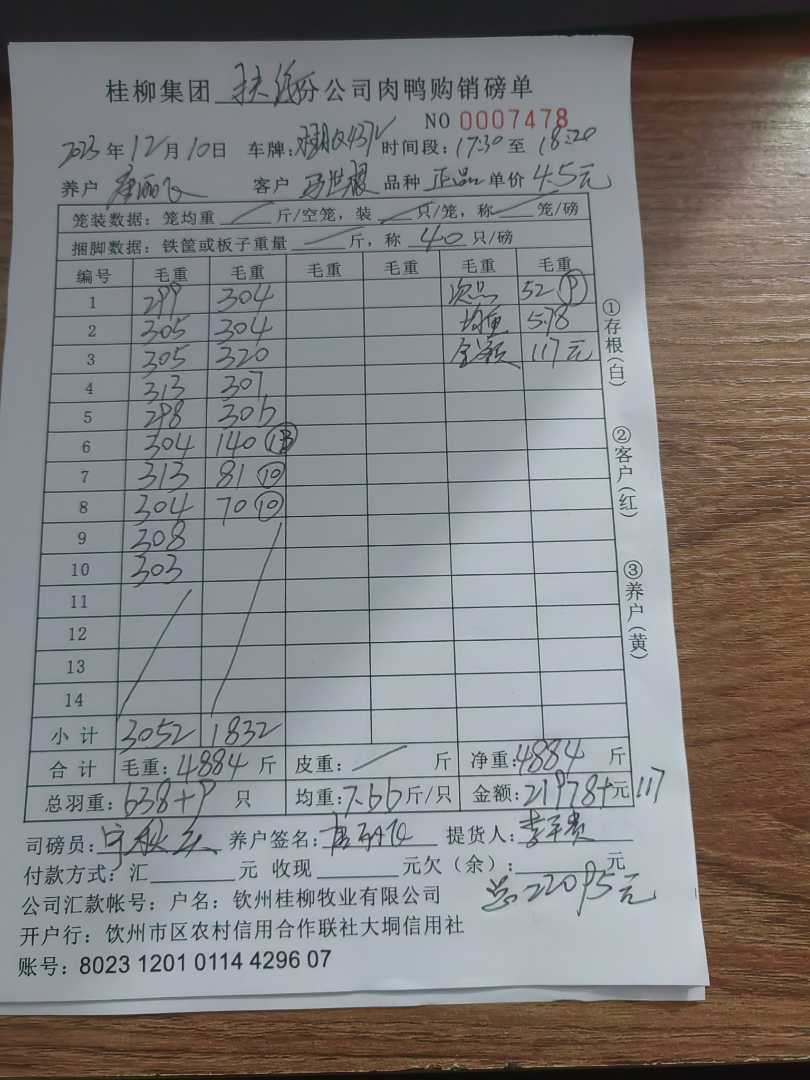 桂柳集团 扶绥分公司肉鸭购销磅单
NO 0007478
2023年12月10日 车牌: 时间段:17:30至18:20
养户 客户 品种 正品 单价 4.5元
笼装数据：笼均重 / 斤/空笼，装 / 只/笼，称 / 笼/磅
捆脚数据：铁筐或板子重量 / 斤，称 40 只/磅
编号 毛重 毛重 毛重 毛重 毛重 毛重
1 299 304 次品 52 ⑨
2 305 304 均重 5.78
3 305 320 金额 117元
4 313 307
5 298 306
6 304 140 ⑱
7 313 81 ⑩
8 304 70 ⑩
9 308
10 303
11
12
13
14
小计 3052 1832
合计 毛重:4884斤 皮重: / 斤 净重:4884斤
总羽重:638+9只 均重:7.66斤/只 金额:21978+元117
司磅员: 养户签名: 提货人:
付款方式：汇 元 收现 元欠（余）: 元
总22095元
公司汇款帐号：户名：钦州桂柳牧业有限公司
开户行：饮州市区农村信用合作联社大垌信用社
账号：8023 1201 0114 4296 07
①存根(白)
②客户(红)
③养户(黄)